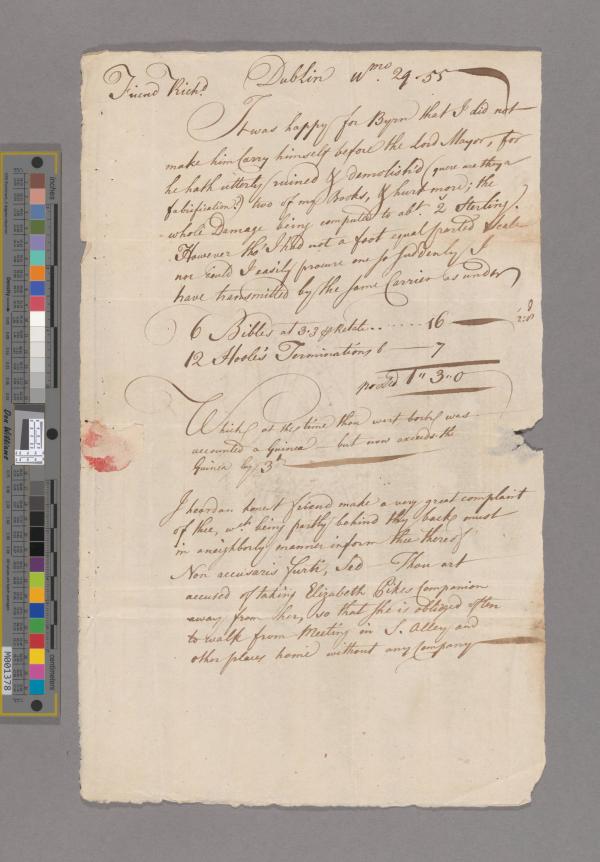 Friend Richd Dublin 11mo 29-55
It was happy for Byrn that I did not
make him Carry himself before the Lord Mayor, for
he hath utterly (ruined & demolish'd (quere are they a
fabrification?) two of my Books, & hurt more; the
whole Damage being computed to abt. 2 Sterling.
However tho' I had not a foot equal parted Scale
nor could I easily procure one so suddenly I
have transmitted by the same Carrier as under
6 Bibles at 3.3 16
12 Hoole's Terminations 6 7
1" 3" 0
Which at the time thou wert born was
accounted a Guinea - but now exceeds the
Guinea by 3d
I heard an honest friend make a very great complaint
of thee, wch being partly behind thy back must
in a neighborly manner inform thee thereof
Non accusaris furti, Sed Thou art
accused of taking Elizabeth Pikes Companion
away from her, so that she is obliged often
to walk from Meeting in S. Alley and
other places home without any Company
inches
centimeters
Don Williams
M001378